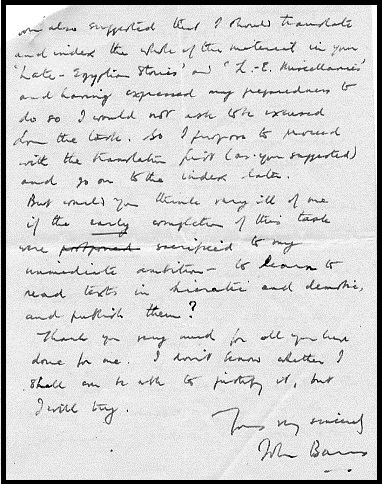 You also suggested that I should translate
and index the whole of the material in your
'Late-Egyptian Stories' and 'L.-E. Miscellanies'
and having expressed my preparedness to
do so I would not ask to be excused
from the task. So I propose to proceed
with the translation first (as you suggested)
and go on to the index later.
But would you think very ill of me
if the early completion of this task
were postponed sacrificed to my
immediate ambition – to learn to
read texts in hieratic and demotic,
and publish them?
Thank you very much for all you have
done for me. I don't know whether I
shall ever be able to justify it, but
I will try.
Yours very sincerely
John Barns